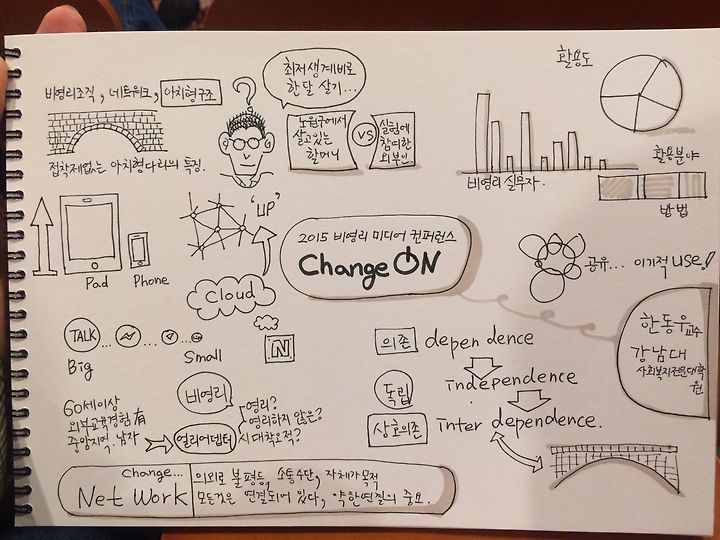 비영리조직, 네트워크, 아치형구조
접착제없는 아치형다리의 특징.
?
최저생계비로
한달 살기...
노원구에서
살고있는
할머니
VS
실험에
참여한
외부인
활용도
비영리 실무자.
활용분야
방법
Pad
Phone
'UP'
Cloud
2015 비영리 미디어 컨퍼런스
Change ON
공유... 이기적 use!
한동우 교수
강남대
사회복지전문대학
원
TALK ... ... ...
Big
Small
N
의존 dependence
독립 independence
상호의존 inter dependence.
60세이상
외부교육경험 有
중앙지역. 남자
비영리
얼리어댑터
영리?
영리하지 않은?
시대착오적?
Change...
Net Work
의외로 불평등, 소통수단, 자체가목적
모든것은 연결되어 있다, 약한연결의 중요.